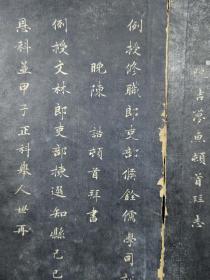 頓首
例授修職郎吏部候銓儒學司
晚陳 誥頓首拜書
例授文林郎吏部揀選知縣己巳
恩科並甲子正科舉人世再